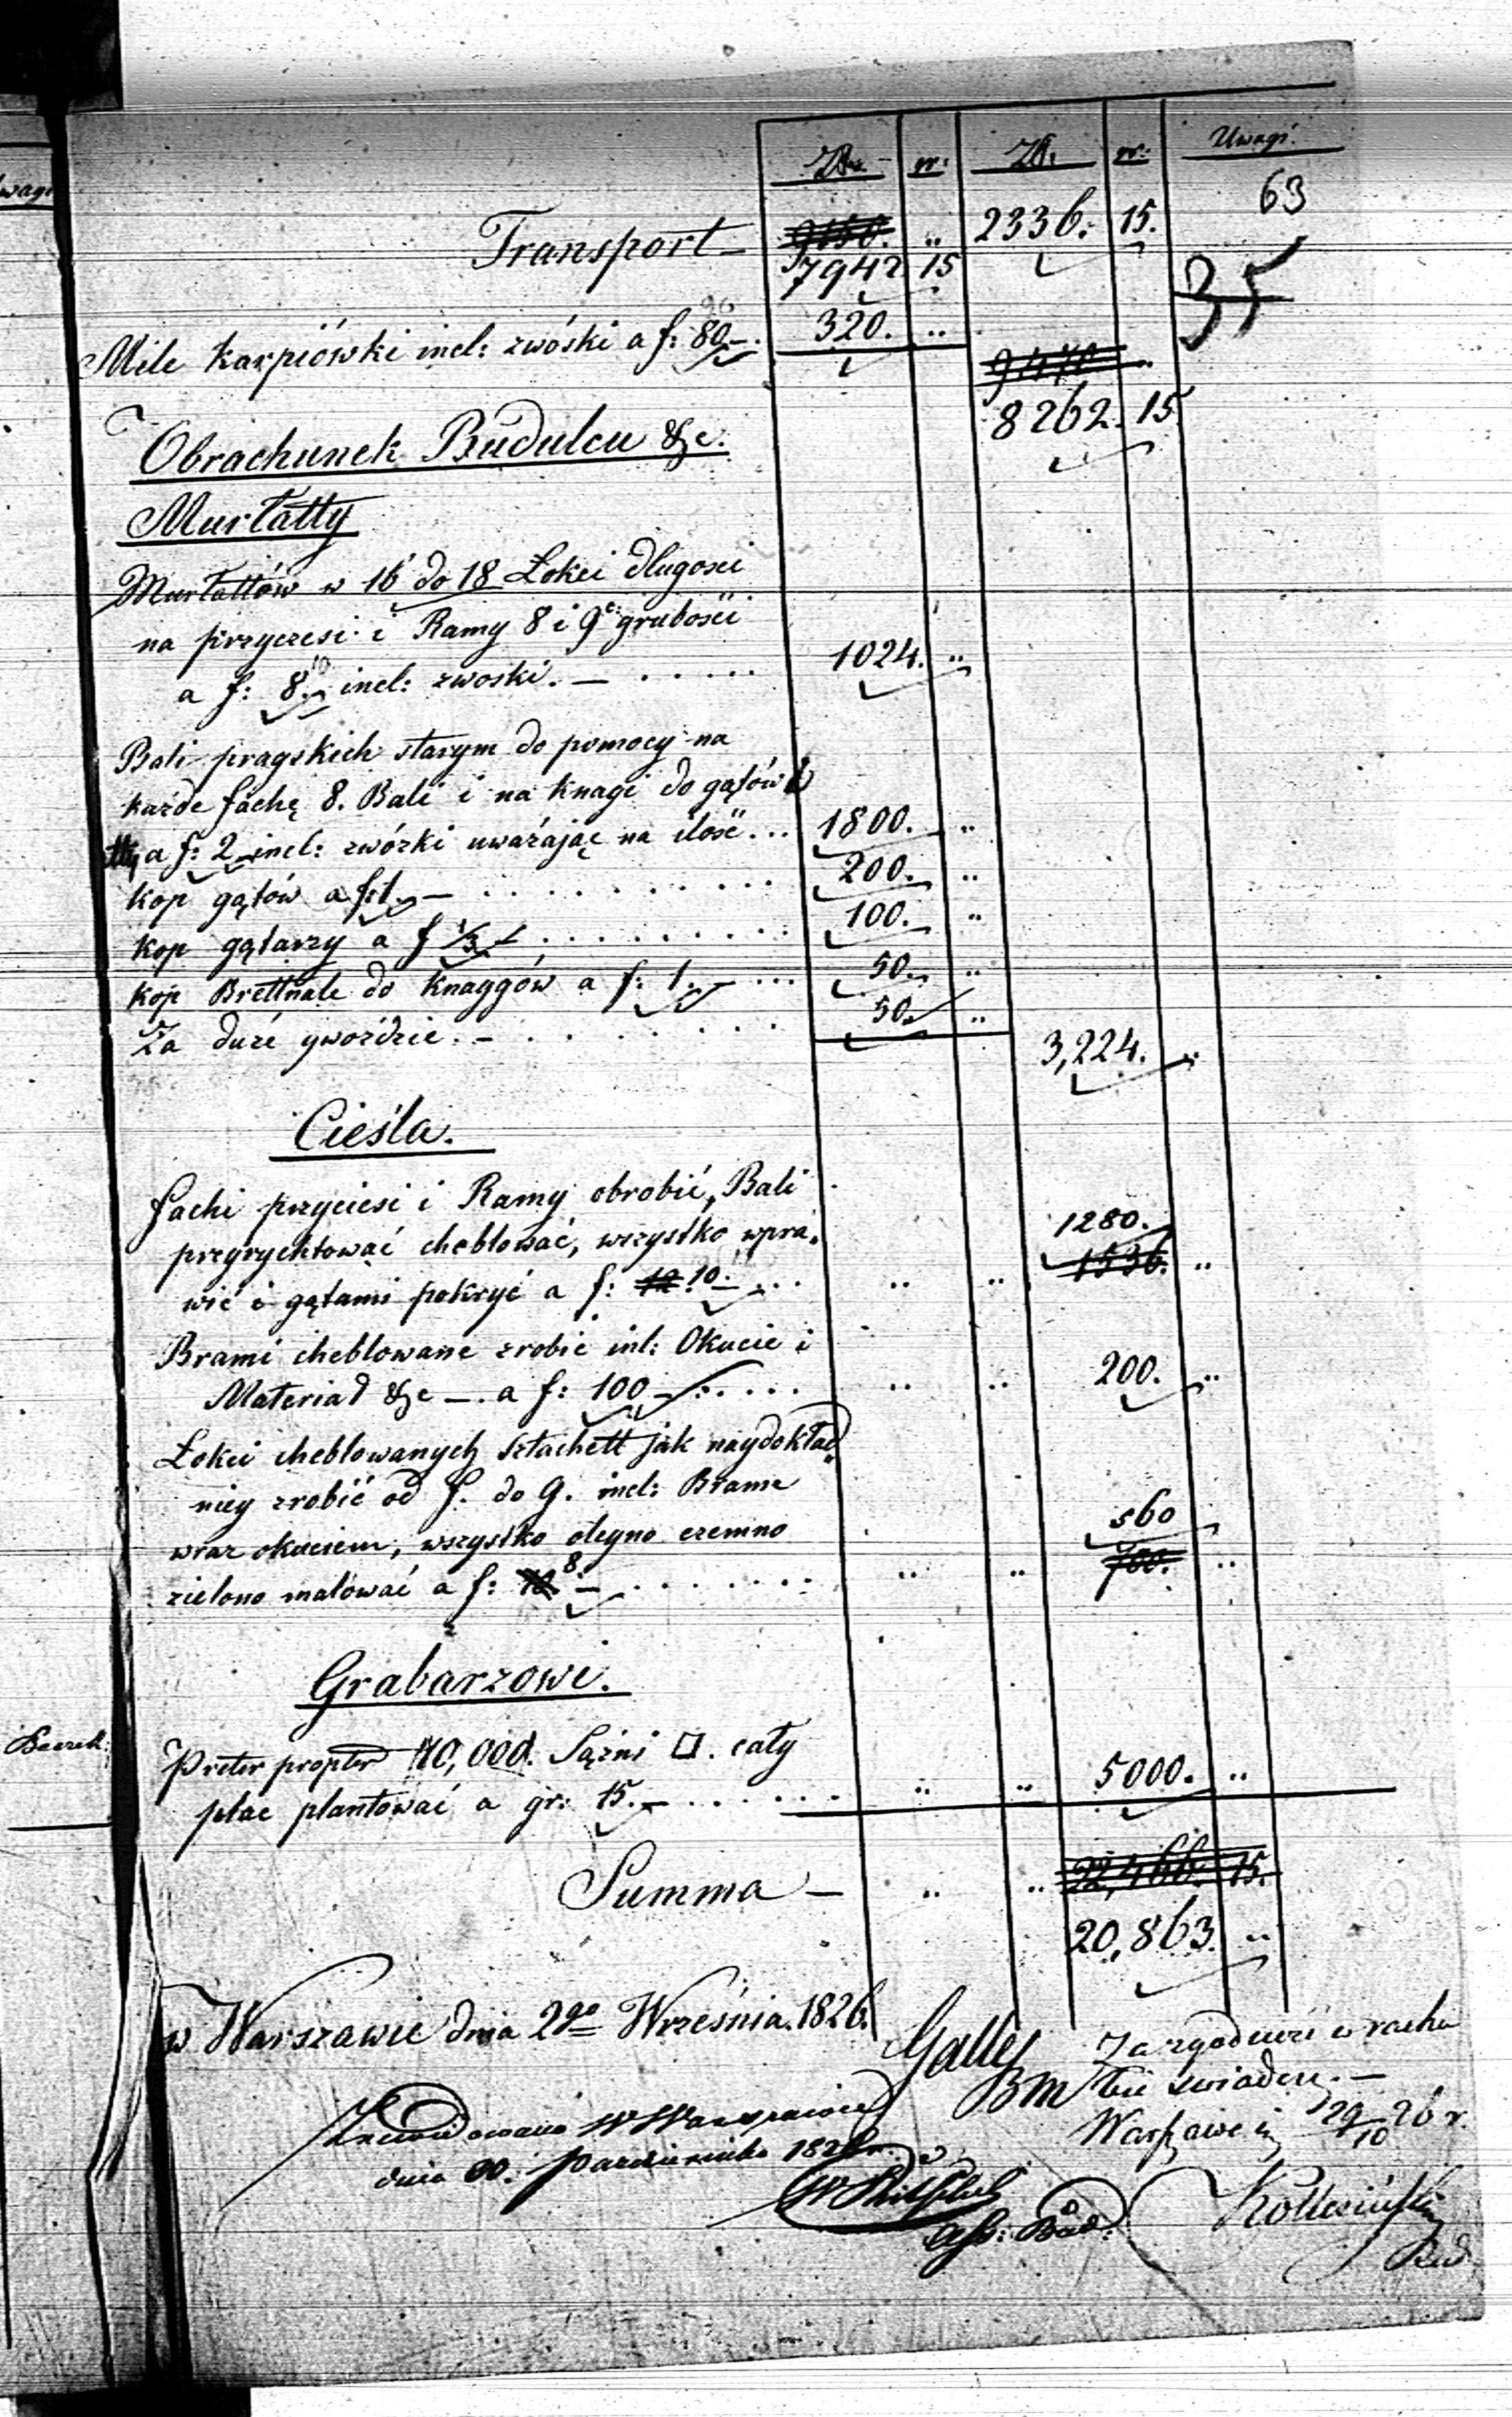 wagi
Zł. gr: Zł: gr: Uwagi.
63
Transport — 9150. .. 2336. 15.
7942 15
35
Mile karpiówki incl: zwóski a f: 80 —. 320. ..
9470 ..
8262. 15
Obrachunek Budulcu &c.
Murłatty
Murłattów w 16 do 18 Łokci długosci
na przyciesi i Ramy 8 i 9 c: grubości
a f: 8. incl: zwoski. — ..... 1024. ..
Bali pragskich starym do pomocy na
każde fachę 8. Bali i na knagi do gątów
a f: 2 incl: zwózki uważając na ilość ... 1800. ..
kop gątów a f: 1. — .......... 200. ..
kop gątarzy a f 1/3 .......... 100. ..
kop Brettnale do knaggów a f: 1. — ... 50. ..
Za duźe gwoździe. — ....... 50. ..
3,224. ..
Cieśla.
fachi przyciesi i Ramy obrobić, Bali
przyrychtować cheblować, wszystko wpra. 1280.
wić i gątami pokryć a f: 12 10. — ... .. .. 1536. ..
Brami cheblowane zrobić inl: Okucie i
Materiał &c —. a f: 100 — ..... .. .. 200. ..
Łokci cheblowanych sztachett jak naydokład
niey zrobić od f. do g. incl: Brame
wraz okuciem, wszystko oleyno ciemno 560
zielono malować a f: 10 8 — ........ .. .. 700. ..
Grabarzowi.
Preter propter 10,000. Sążni □. cały
plac plantować a gr: 15. — ...... .. .. 5000. ..
Summa — .. .. 22,466. 15.
20,863. ..
w Warszawie dnia 2go Września. 1826.
Galley
BM
Za zgodność w rachu
bie świadczę. —
Warszawie 29/10 26 r.
Zrewidowano w Warszawie
dnia 20. Pazdziernika 1826
Ass: Bud:
Bud